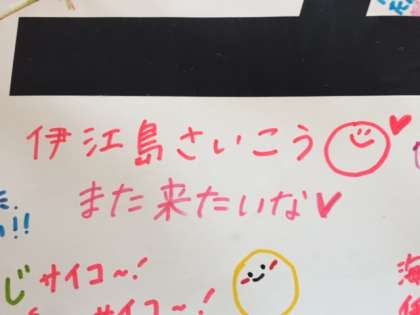 伊江島さいこう
また来たいな♥
!!
じサイコ〜!
サイコ〜!
海